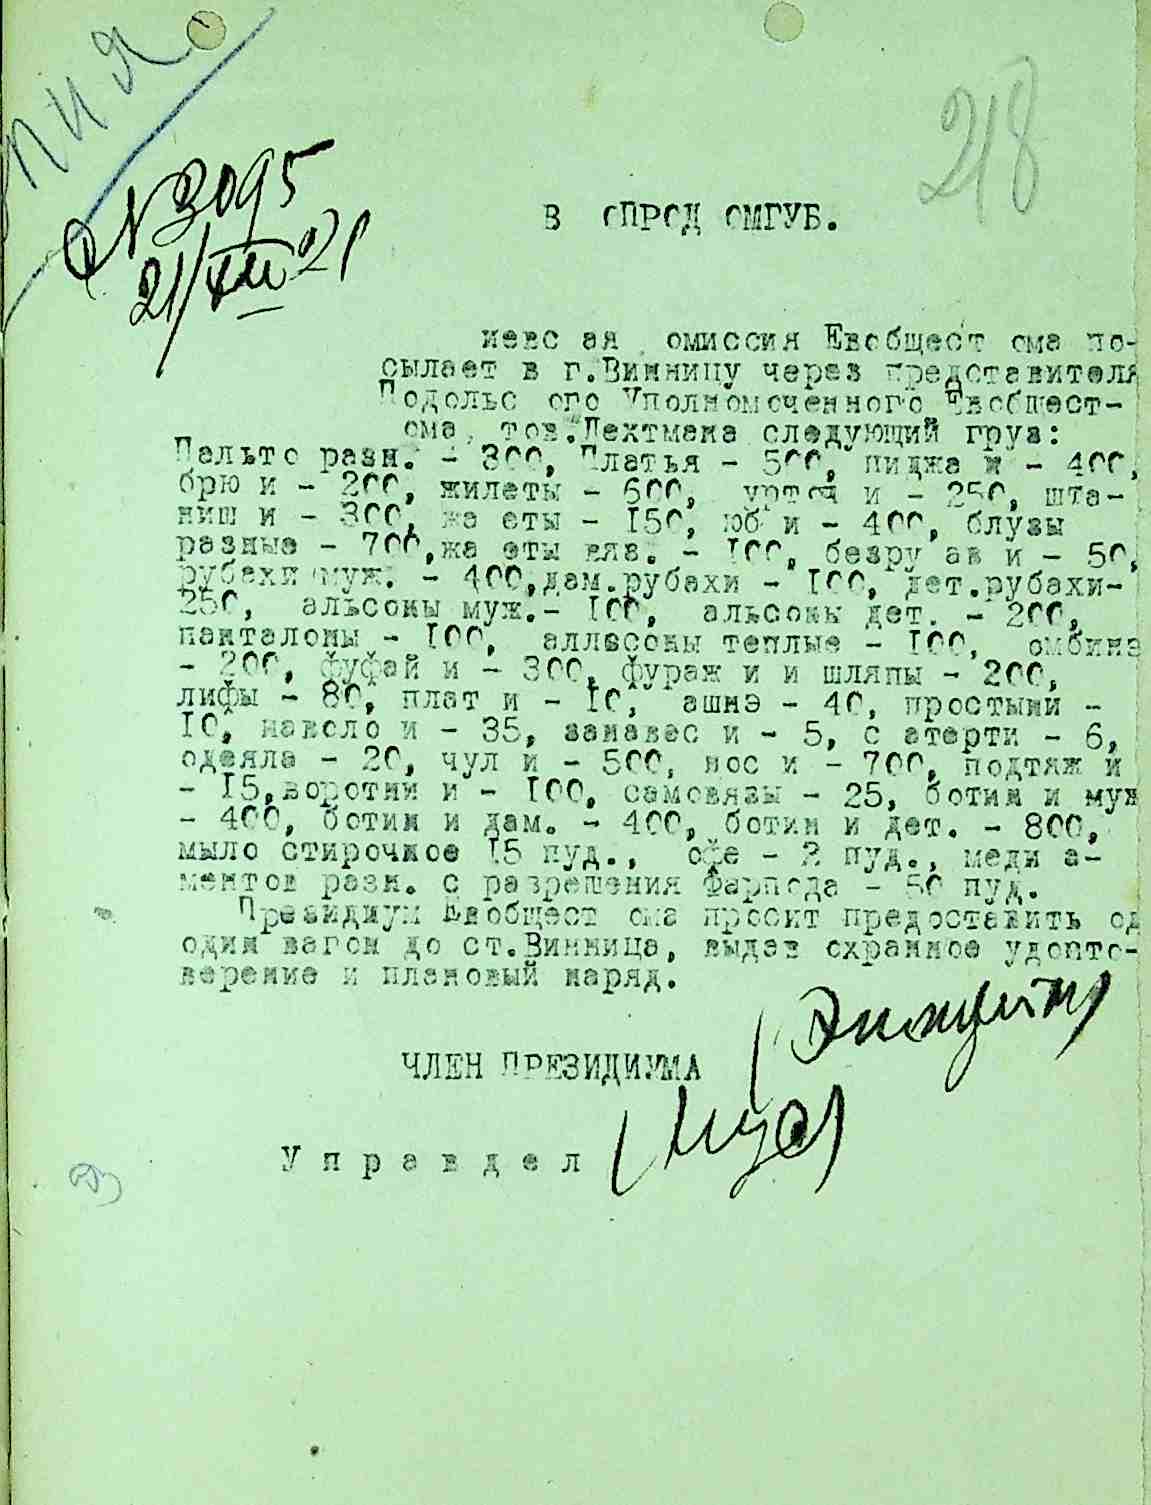 пия
218
№3095
21/XII 21
В ОПРОД ОМГУБ.
иевс ая омиссия Евобщест ома по-
сылает в г.Винницу через представителя
Подольс ого Уполномоченного Евобщест-
ома, тов.Лехтмана следующий груз:
Пальто разн. - 300, Платья - 500, пиджа и - 400,
брю и - 200, жилеты - 600, урточ и - 250, шта-
ниш и - 300, жа еты - 150, юб и - 400, блузы
разные - 700,жа еты вяз. - 100, безру ав и - 50,
рубахи муж. - 400,дам.рубахи - 100, дет.рубахи-
250, альсоны муж.- 100, альсоны дет. - 200,
панталоны - 100, алльсоны теплые - 100, омбина
- 200, фуфай и - 300, фураж и и шляпы - 200,
лифы - 80, плат и - 10, ашнэ - 40, простыни -
10, наволо и - 35, занавес и - 5, с атерти - 6,
одеяла - 20, чул и - 500, нос и - 700, подтяж и
- 15,воротни и - 100, самовязы - 25, ботин и муж
- 400, ботин и дам. - 400, ботин и дет. - 800,
мыло стирочное 15 пуд., офе - 2 пуд., меди а-
ментов разн. с разрешения Фарпода - 50 пуд.
Президиум Евобщест ома просит предоставить од
один вагон до ст.Винница, выдав охранное удосто-
верение и плановый наряд.
ЧЛЕН ПРЕЗИДИУМА
Управдел